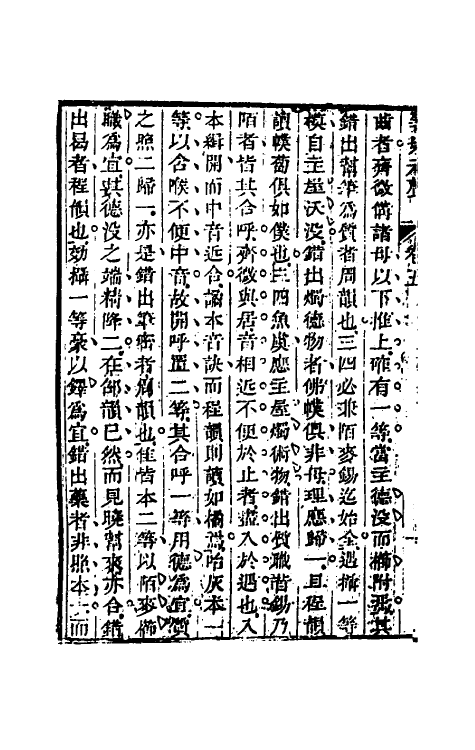 齒者齊微偶諸母以下惟上確有一等當主德沒而櫛附弧其
錯出幫筆爲質者周韻也三四必兼陌麥錫迄始全遇攝一等
模自主屋沃沒錯出燭德物者佛幞俱非母理應歸一且程韻
讀幞蔔俱如僕也三四魚虞應主屋燭術物錯出質職階錫乃
陌者皆其合呼齊微與居音相近不便於止者盡入於遇也入
本緝開而中音近合菡本音訣而程韻則讀如橘誤哈灰本一
等以合喉不便中音故開呼置二等其合呼一等用德爲宜質
之照二歸一亦是錯出櫛者周韻也佳皆本二等以陌麥櫛
職爲宜其德沒之端精降二在邵韻已然而見曉幫來亦合錯
出曷者程韻也効攝一等豪以鐸爲宜錯出藥者非照本二而